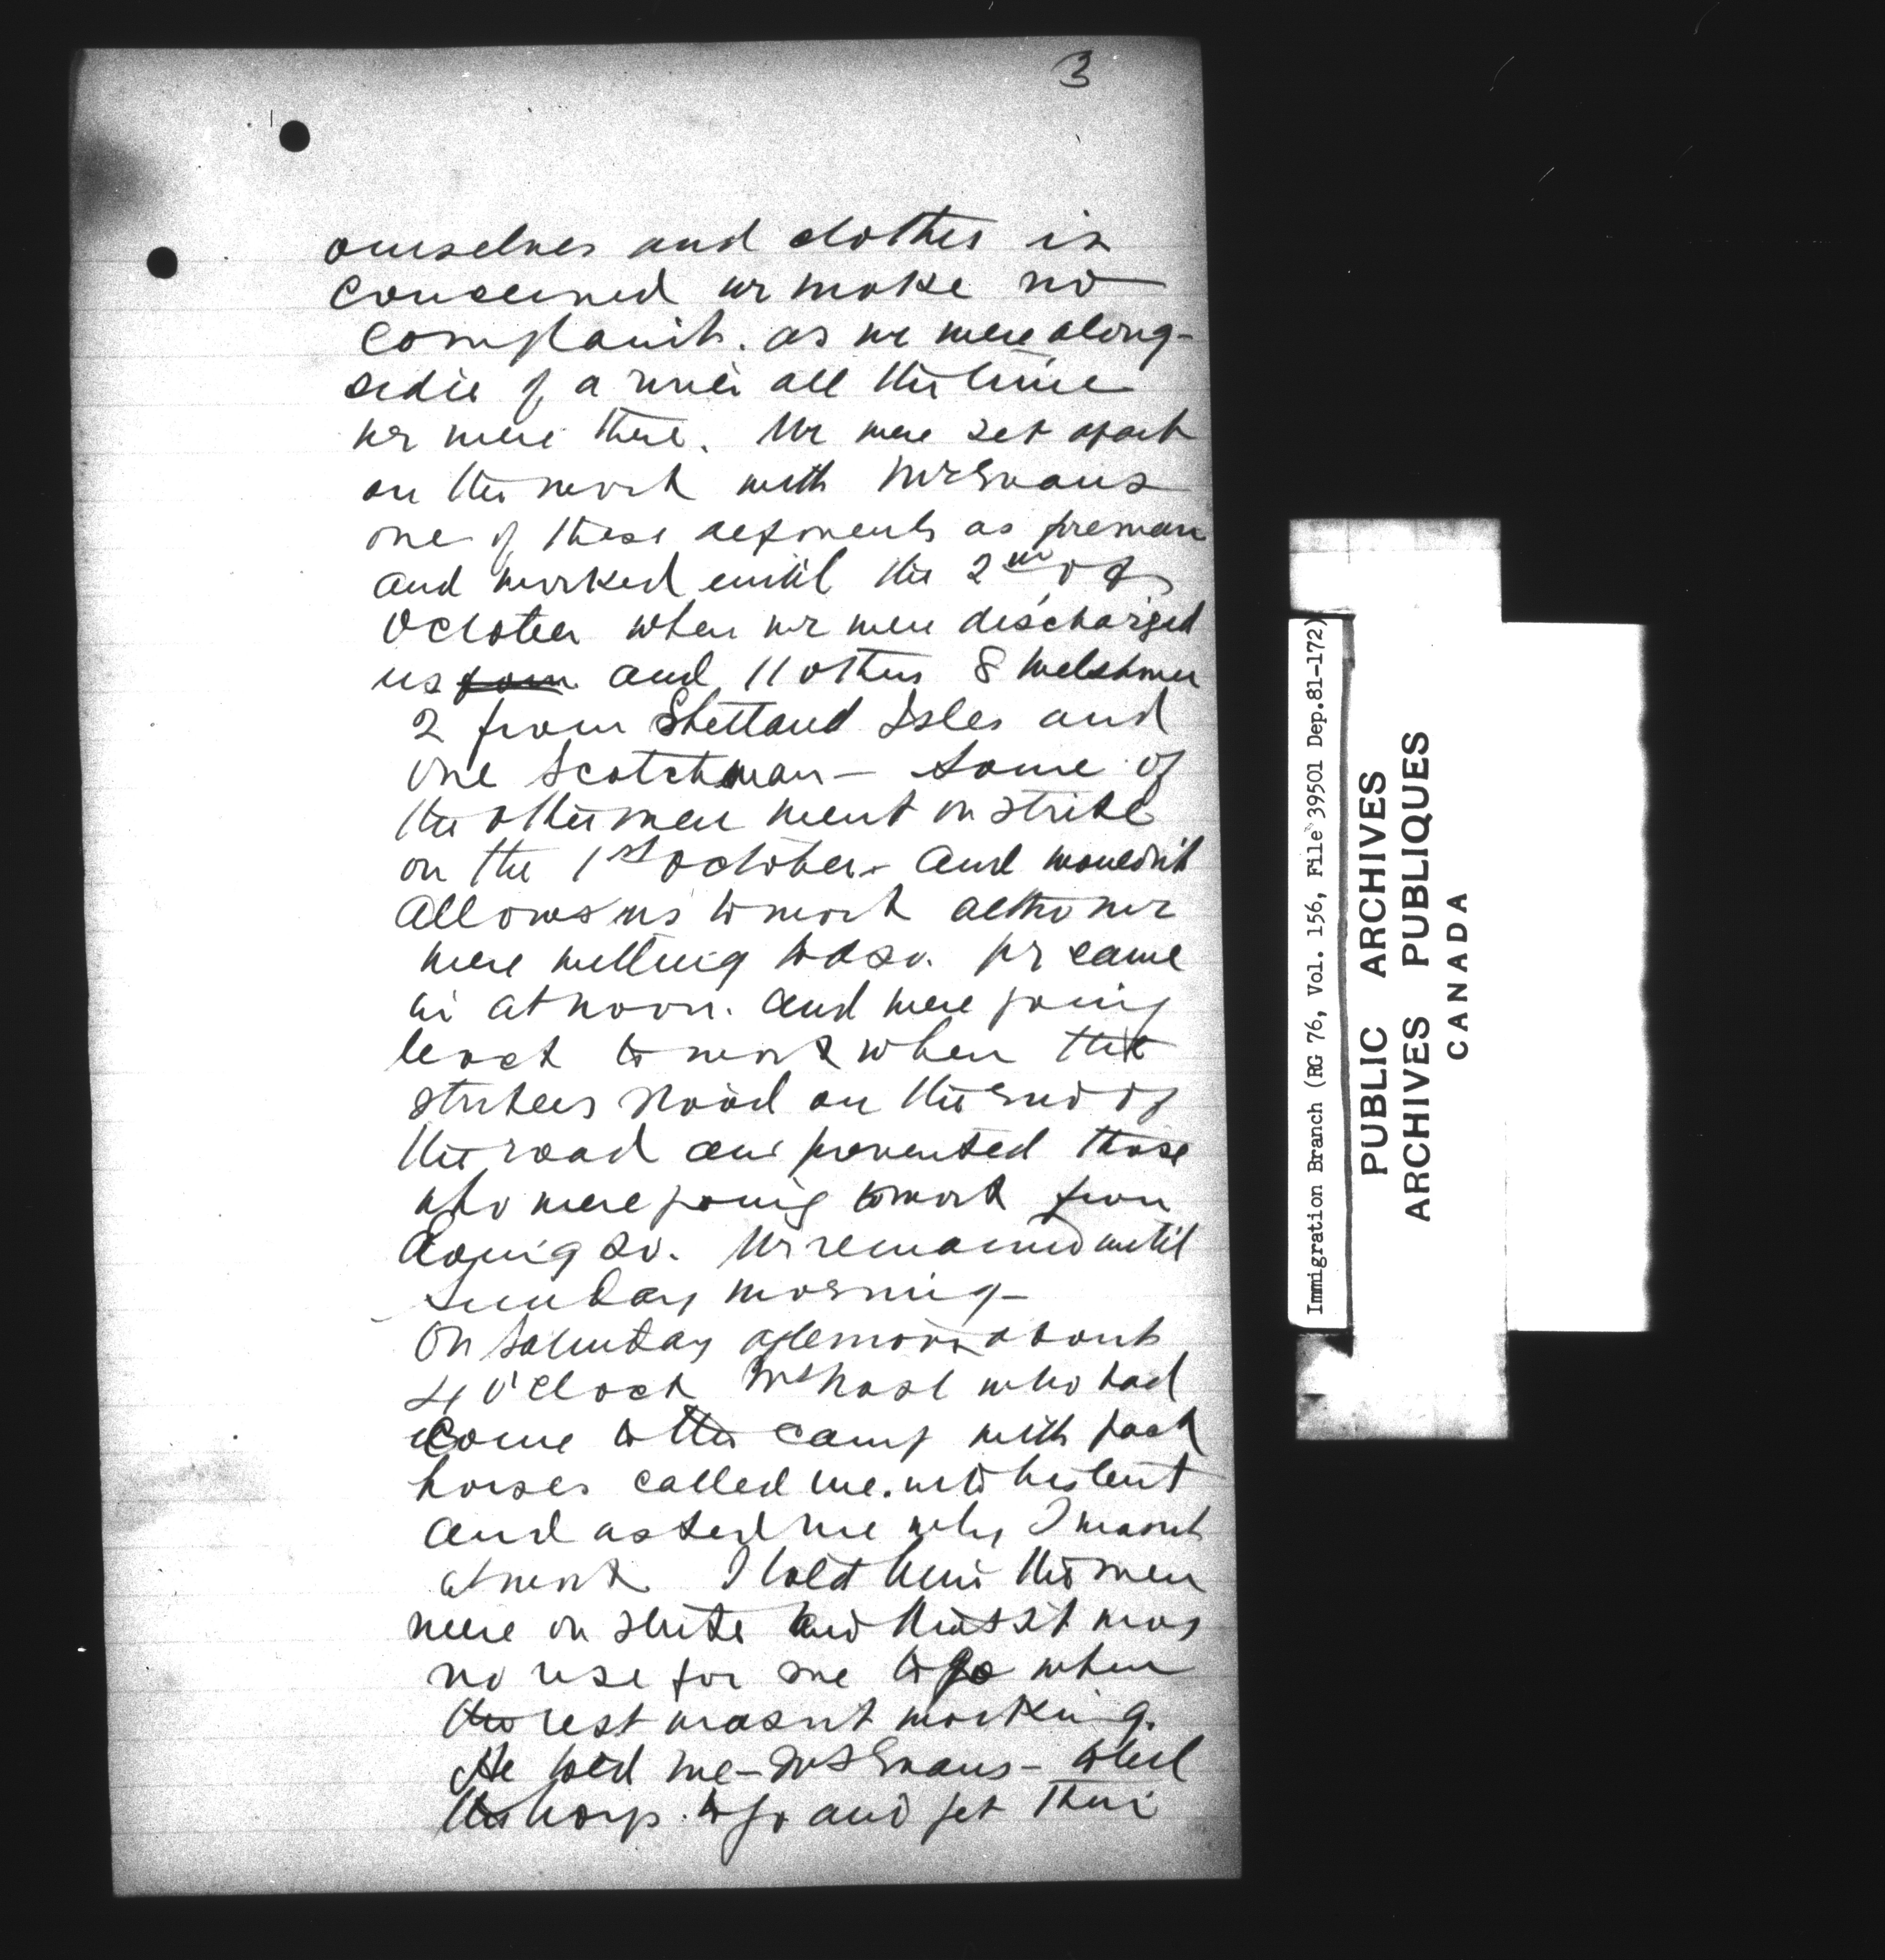 3
ourselves and clothes is
concerned we make no
complaint. as we were along-
side of a river all the time
we were there. We were set apart
on the work with Mr Evans
one of these deponents as foreman
and worked until the 2nd of
October when we were discharged
us and 11 others 8 Welshmen
2 from Shettand Isles and
one Scotchman — Some of
the other men went on strike
on the 1st October - and wouldn't
allows us to work altho we
were willing to do so. We came
in at noon. and were going
back to work when the
strikers stood on the end of
the road and prevented those
who were going to work from
doing so. We remained until
Sunday morning -
On Saturday afternoon about
4 O'Clock Mr who had
come to the camp with pack
horses called me into his tent
and asked me why I wasnt
at work I told him the men
were on strike and that it was
no use for me to go when
the rest wasnt working.
He told me - Mr Evans - to tell
the boys to go and get their
Immigration Branch (RG 76, Vol. 156, File 39501 Dep.81-172)
PUBLIC ARCHIVES
ARCHIVES PUBLIQUES
CANADA